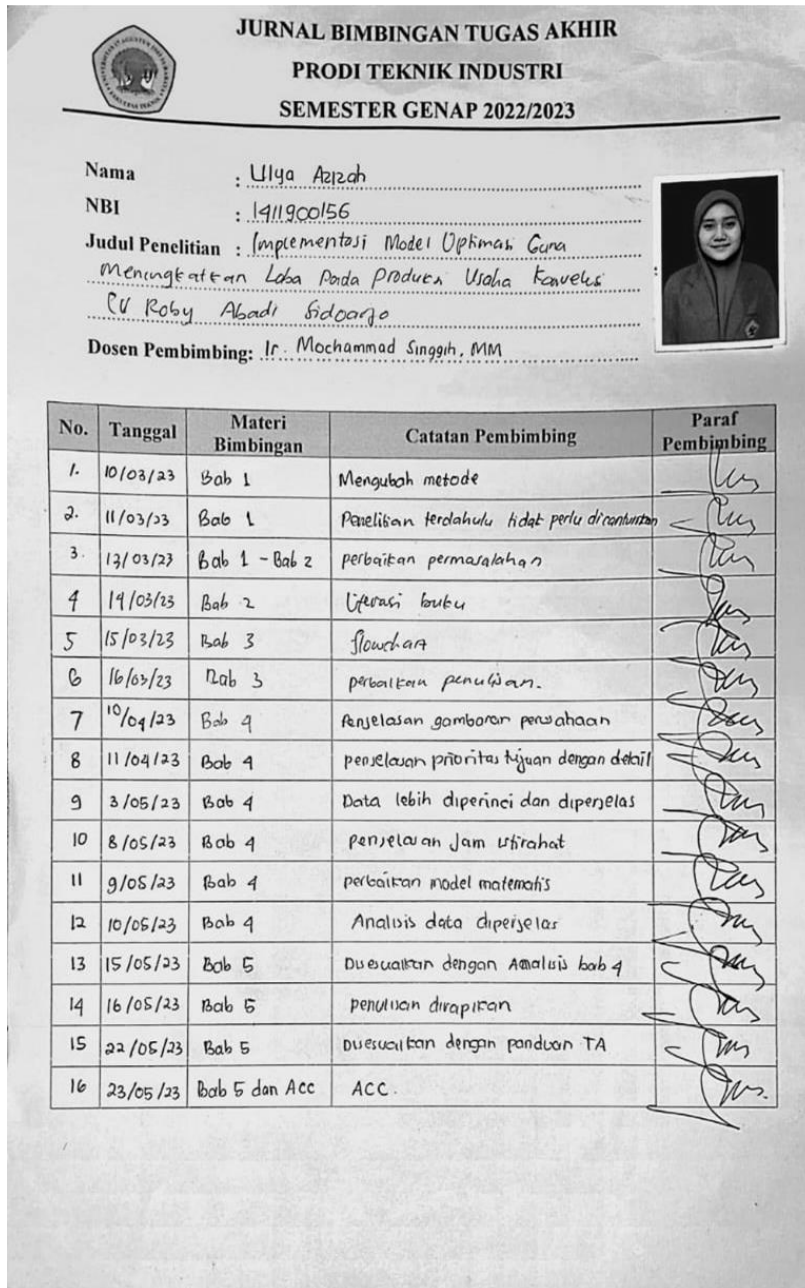 JURNAL BIMBINGAN TUGAS AKHIR
PRODI TEKNIK INDUSTRI
SEMESTER GENAP 2022/2023
Nama : Ulya Azizah
NBI : 1411900156
Judul Penelitian : Implementasi Model Optimasi Guna
Meningkatkan Laba Pada Produksi Usaha Konveksi
CV Roby Abadi Sidoarjo
:
Dosen Pembimbing: Ir. Mochammad Singgih, MM
No. Tanggal Materi Bimbingan Catatan Pembimbing Paraf Pembimbing
1. 10/03/23 Bab 1 Mengubah metode
2. 11/03/23 Bab 1 Penelitian terdahulu tidak perlu dicantumkan
3. 13/03/23 Bab 1 - Bab 2 perbaikan permasalahan
4 14/03/23 Bab 2 literasi buku
5 15/03/23 Bab 3 flowchart
6 16/03/23 Bab 3 perbaikan penulisan.
7 10/04/23 Bab 4 Penjelasan gambaran perusahaan
8 11/04/23 Bab 4 penjelasan prioritas tujuan dengan detail
9 3/05/23 Bab 4 Data lebih diperinci dan diperjelas
10 8/05/23 Bab 4 penjelasan Jam istirahat
11 9/05/23 Bab 4 perbaikan model matematis
12 10/05/23 Bab 4 Analisis data diperjelas
13 15/05/23 Bab 5 Disesuaikan dengan Analisis bab 4
14 16/05/23 Bab 5 penulisan dirapikan
15 22/05/23 Bab 5 Disesuaikan dengan panduan TA
16 23/05/23 Bab 5 dan Acc ACC.